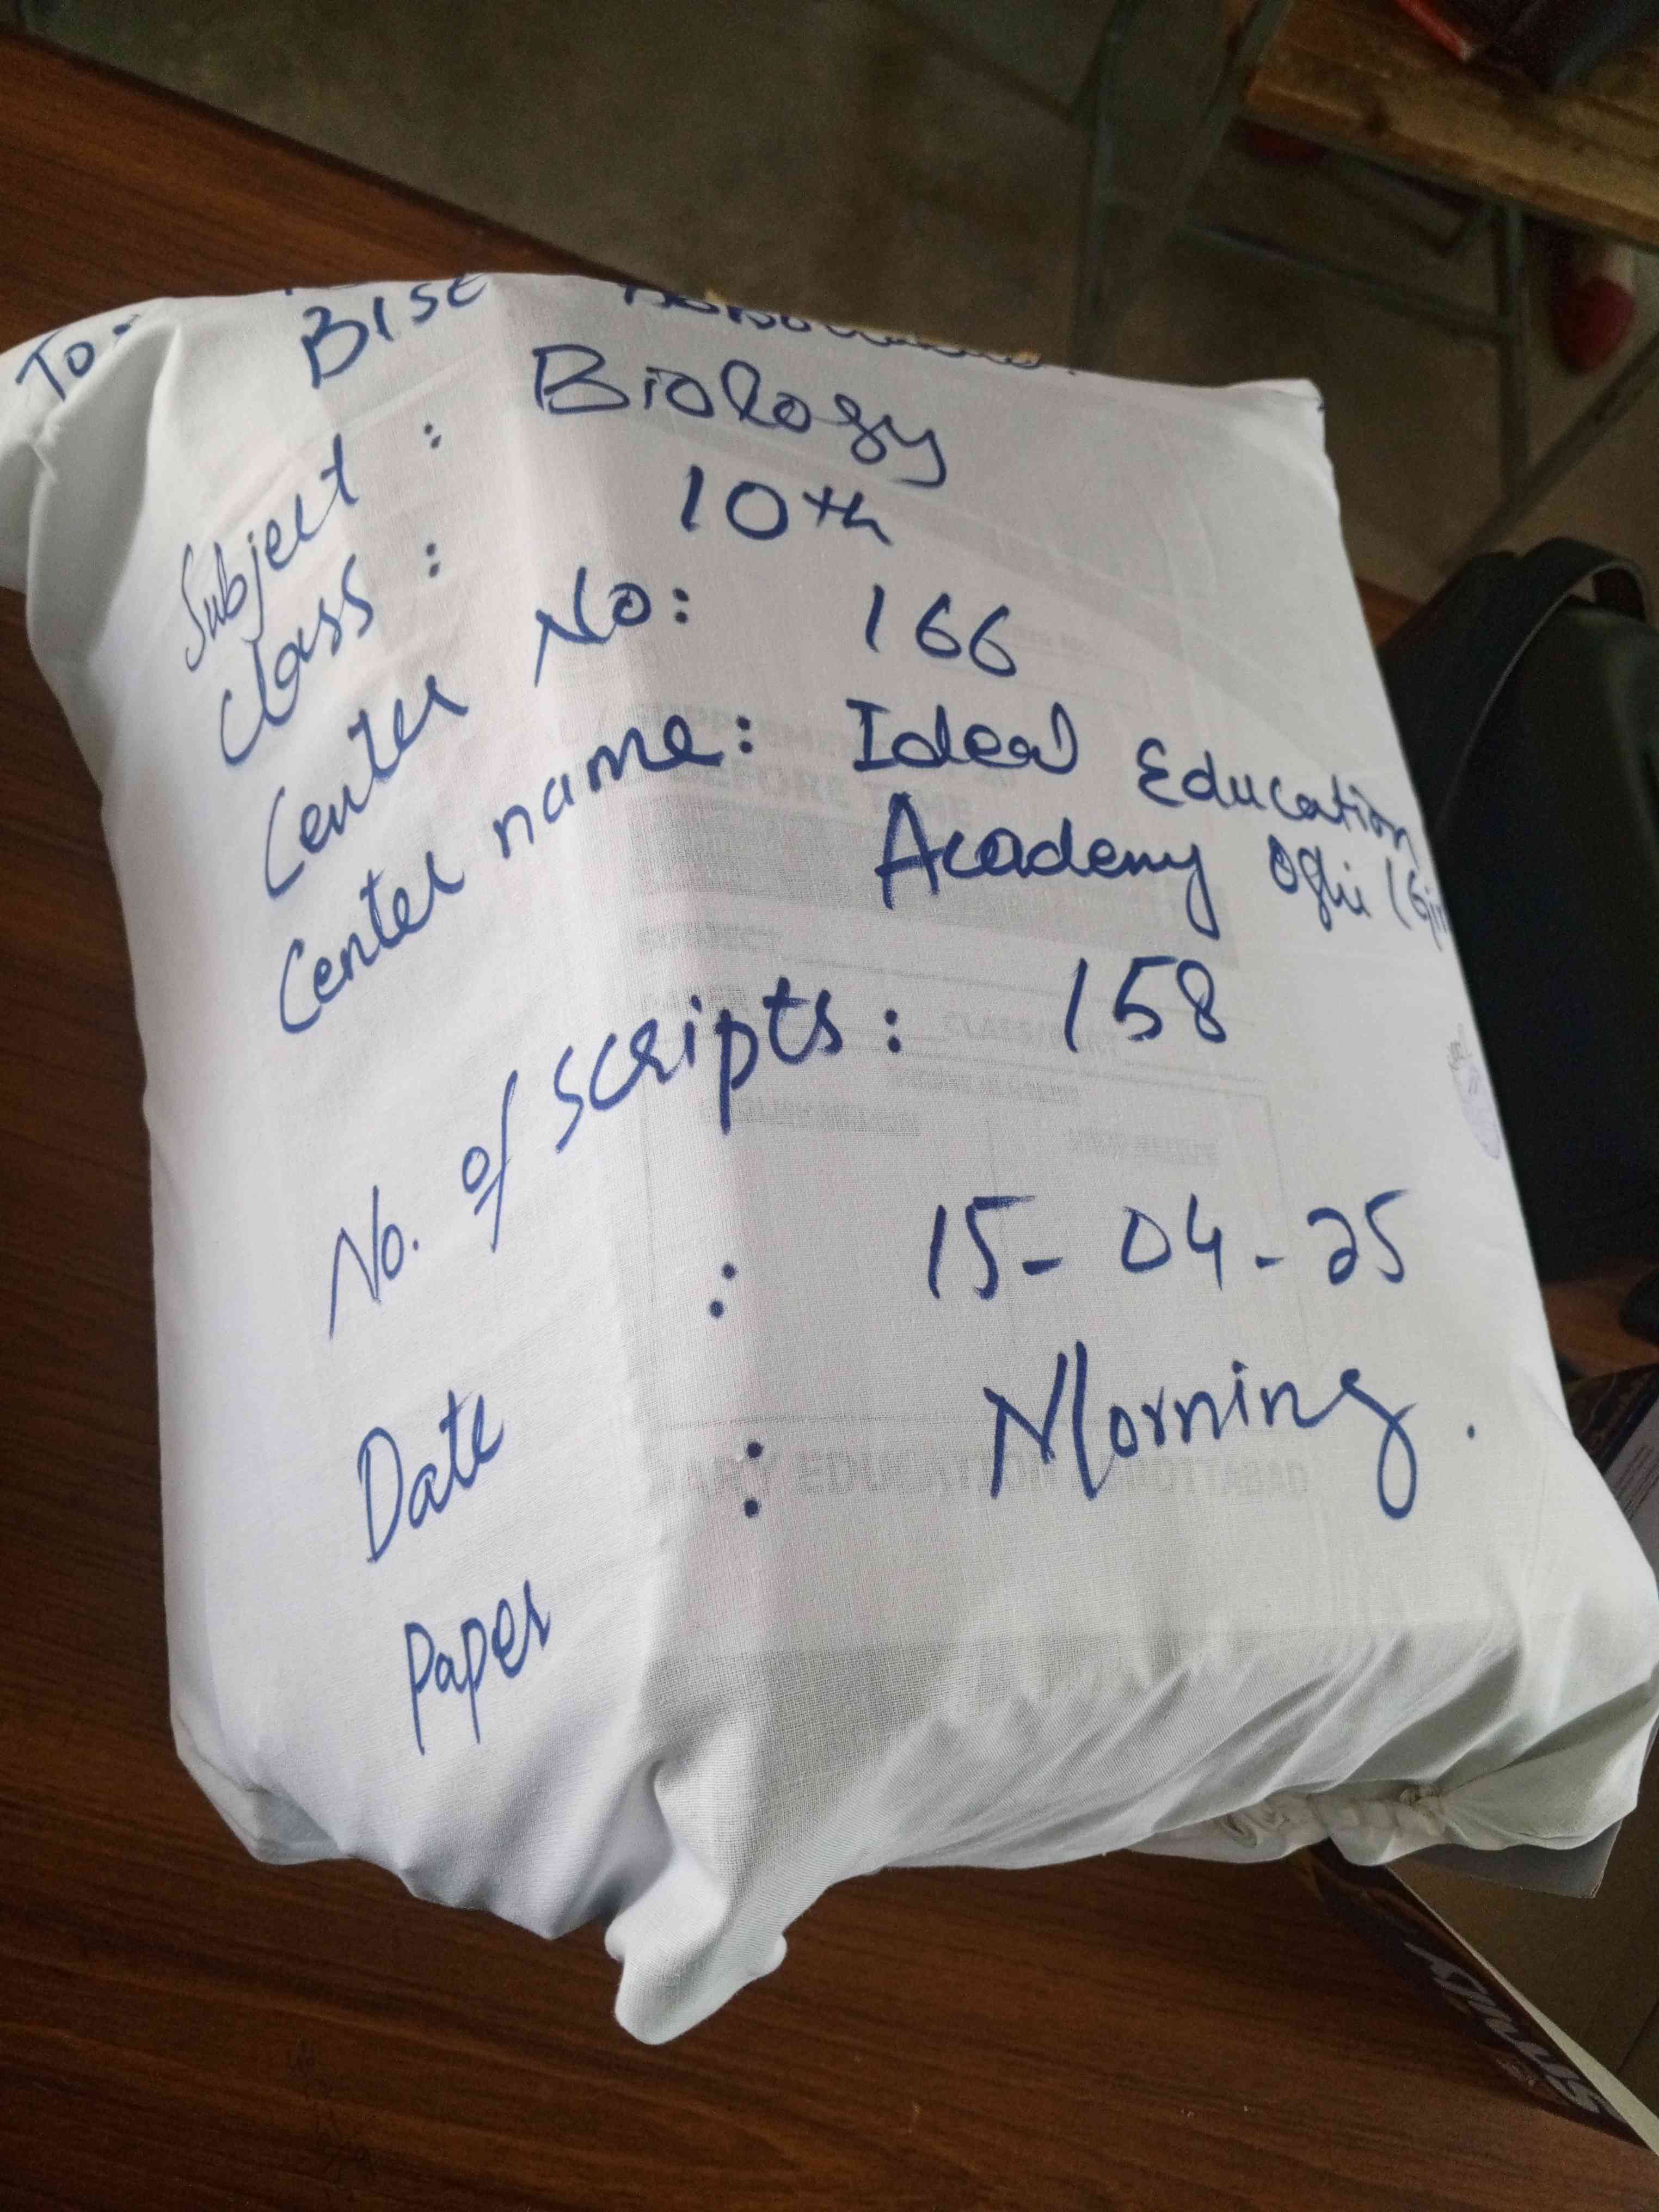 To:- BISE
Subject : Biology
Class : 10th
Center No: 166
Center name: Ideal Education
Academy Oghi
No. of scripts: 158
Date : 15-04-25
Paper : Morning.